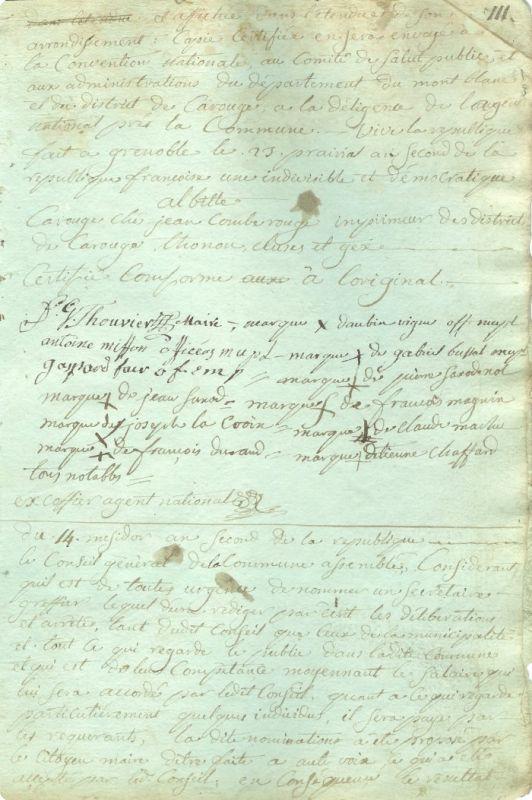 111.
et affichée dans l'étendue de son
arrondissement: Copie Certifiée en sera envoyée à
la Convention nationale, au Comité de Salut public, et
aux administrations du département du mont blanc
et du district de Carouge, a la diligence de l'agent
national près la Commune. Vive la republique
fait a grenoble le 23. prairial an second de la
republique françoise une indivisible et démocratique
albitte
Carouge chés jean Comberouge imprimeur des district
de Carouge, thonon, cluses et gex
Certifié Conforme aux à Loriginal.
Thouvier Maire, marque x daubin vigne off. mupl
antoine miffon officiés mupl - marque x de gabriel bussat mupl
gaspard marque x de pierre
marque x de jean marque x de francois magnin
marque de joseph la marque x de Claude martin
marque x de françois durand - marque x détienne Chaffard
tous notables
excoffier agent national
du 14. mesidor an second de la republique
le Conseil général de la Commune assemblée, Considerant
quil est de toutes urgence de nommer un secrétaire
greffier lequel dura rediger par écrit les délibérations
et arrêtés, tant dudit Conseil que ceux de la municipalité
et tout ce qui regarde le public dans ladite Commune
et qui est de leur Compétance moyennant le salaire qui
lui sera accordés par ledit Conseil, quant a ce qui regarde
particulièrement quelques individus, il sera payé par
les requerants, la dite nominations a été proposé par
le Citoyen maire dêtre faite a aute voix ce qui a été
accepté par le Conseil; en Conséquence le résultat